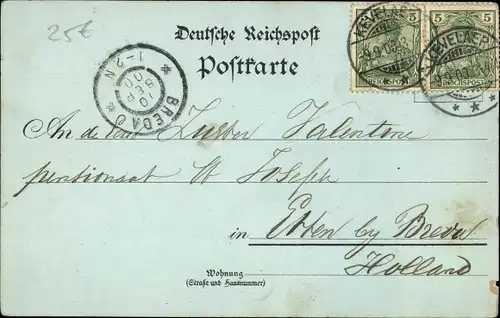 25€
Deutsche Reichspost
Postkarte
KEVELAER
9.9.00.
5 5
5 5
REICHSPOST
KEVELAER
BREDA
10 SEP 00
1-2 N
An de
Valentine
pensionaat St Josefs
in Etten by Breda
Holland
Wohnung
(Straße und Hausnummer)